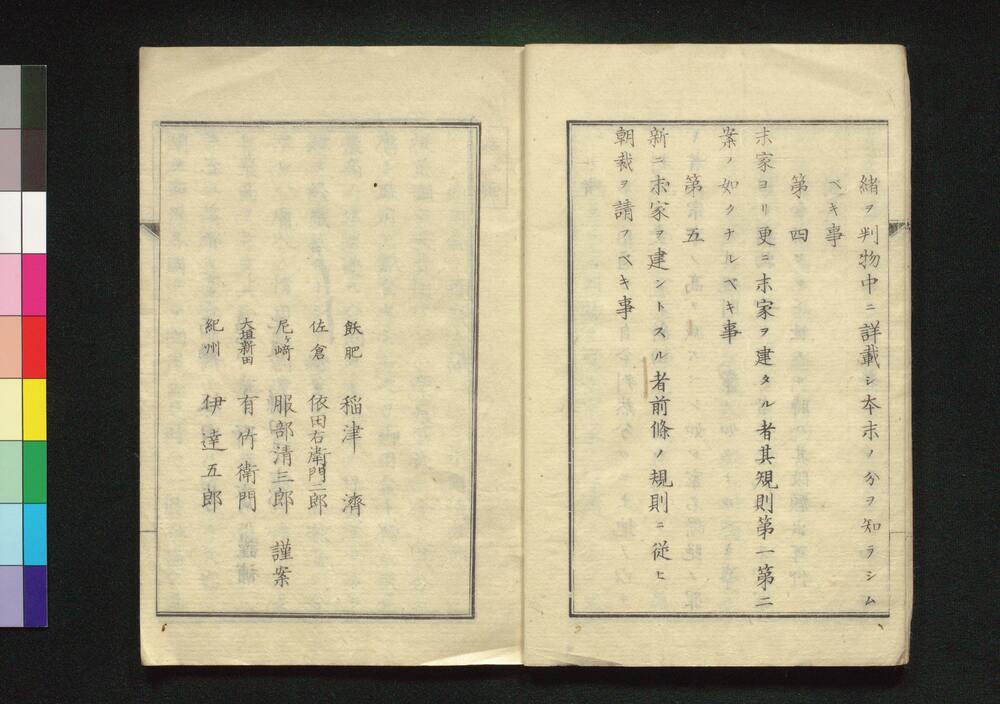 緒ヲ判物中ニ詳載シ本末ノ分ヲ知ラシム
ベキ事
第四
末家ヨリ更ニ末家ヲ建タル者其規則第一第二
案ノ如クナルベキ事
第五
新ニ末家ヲ建ントスル者前條ノ規則ニ従ヒ
朝裁ヲ請フベキ事
飫肥 稲津 濟
佐倉 依田右衛門二郎
尼ヶ崎 服部清三郎 謹案
大垣新田 有竹衛門
紀州 伊達五郎